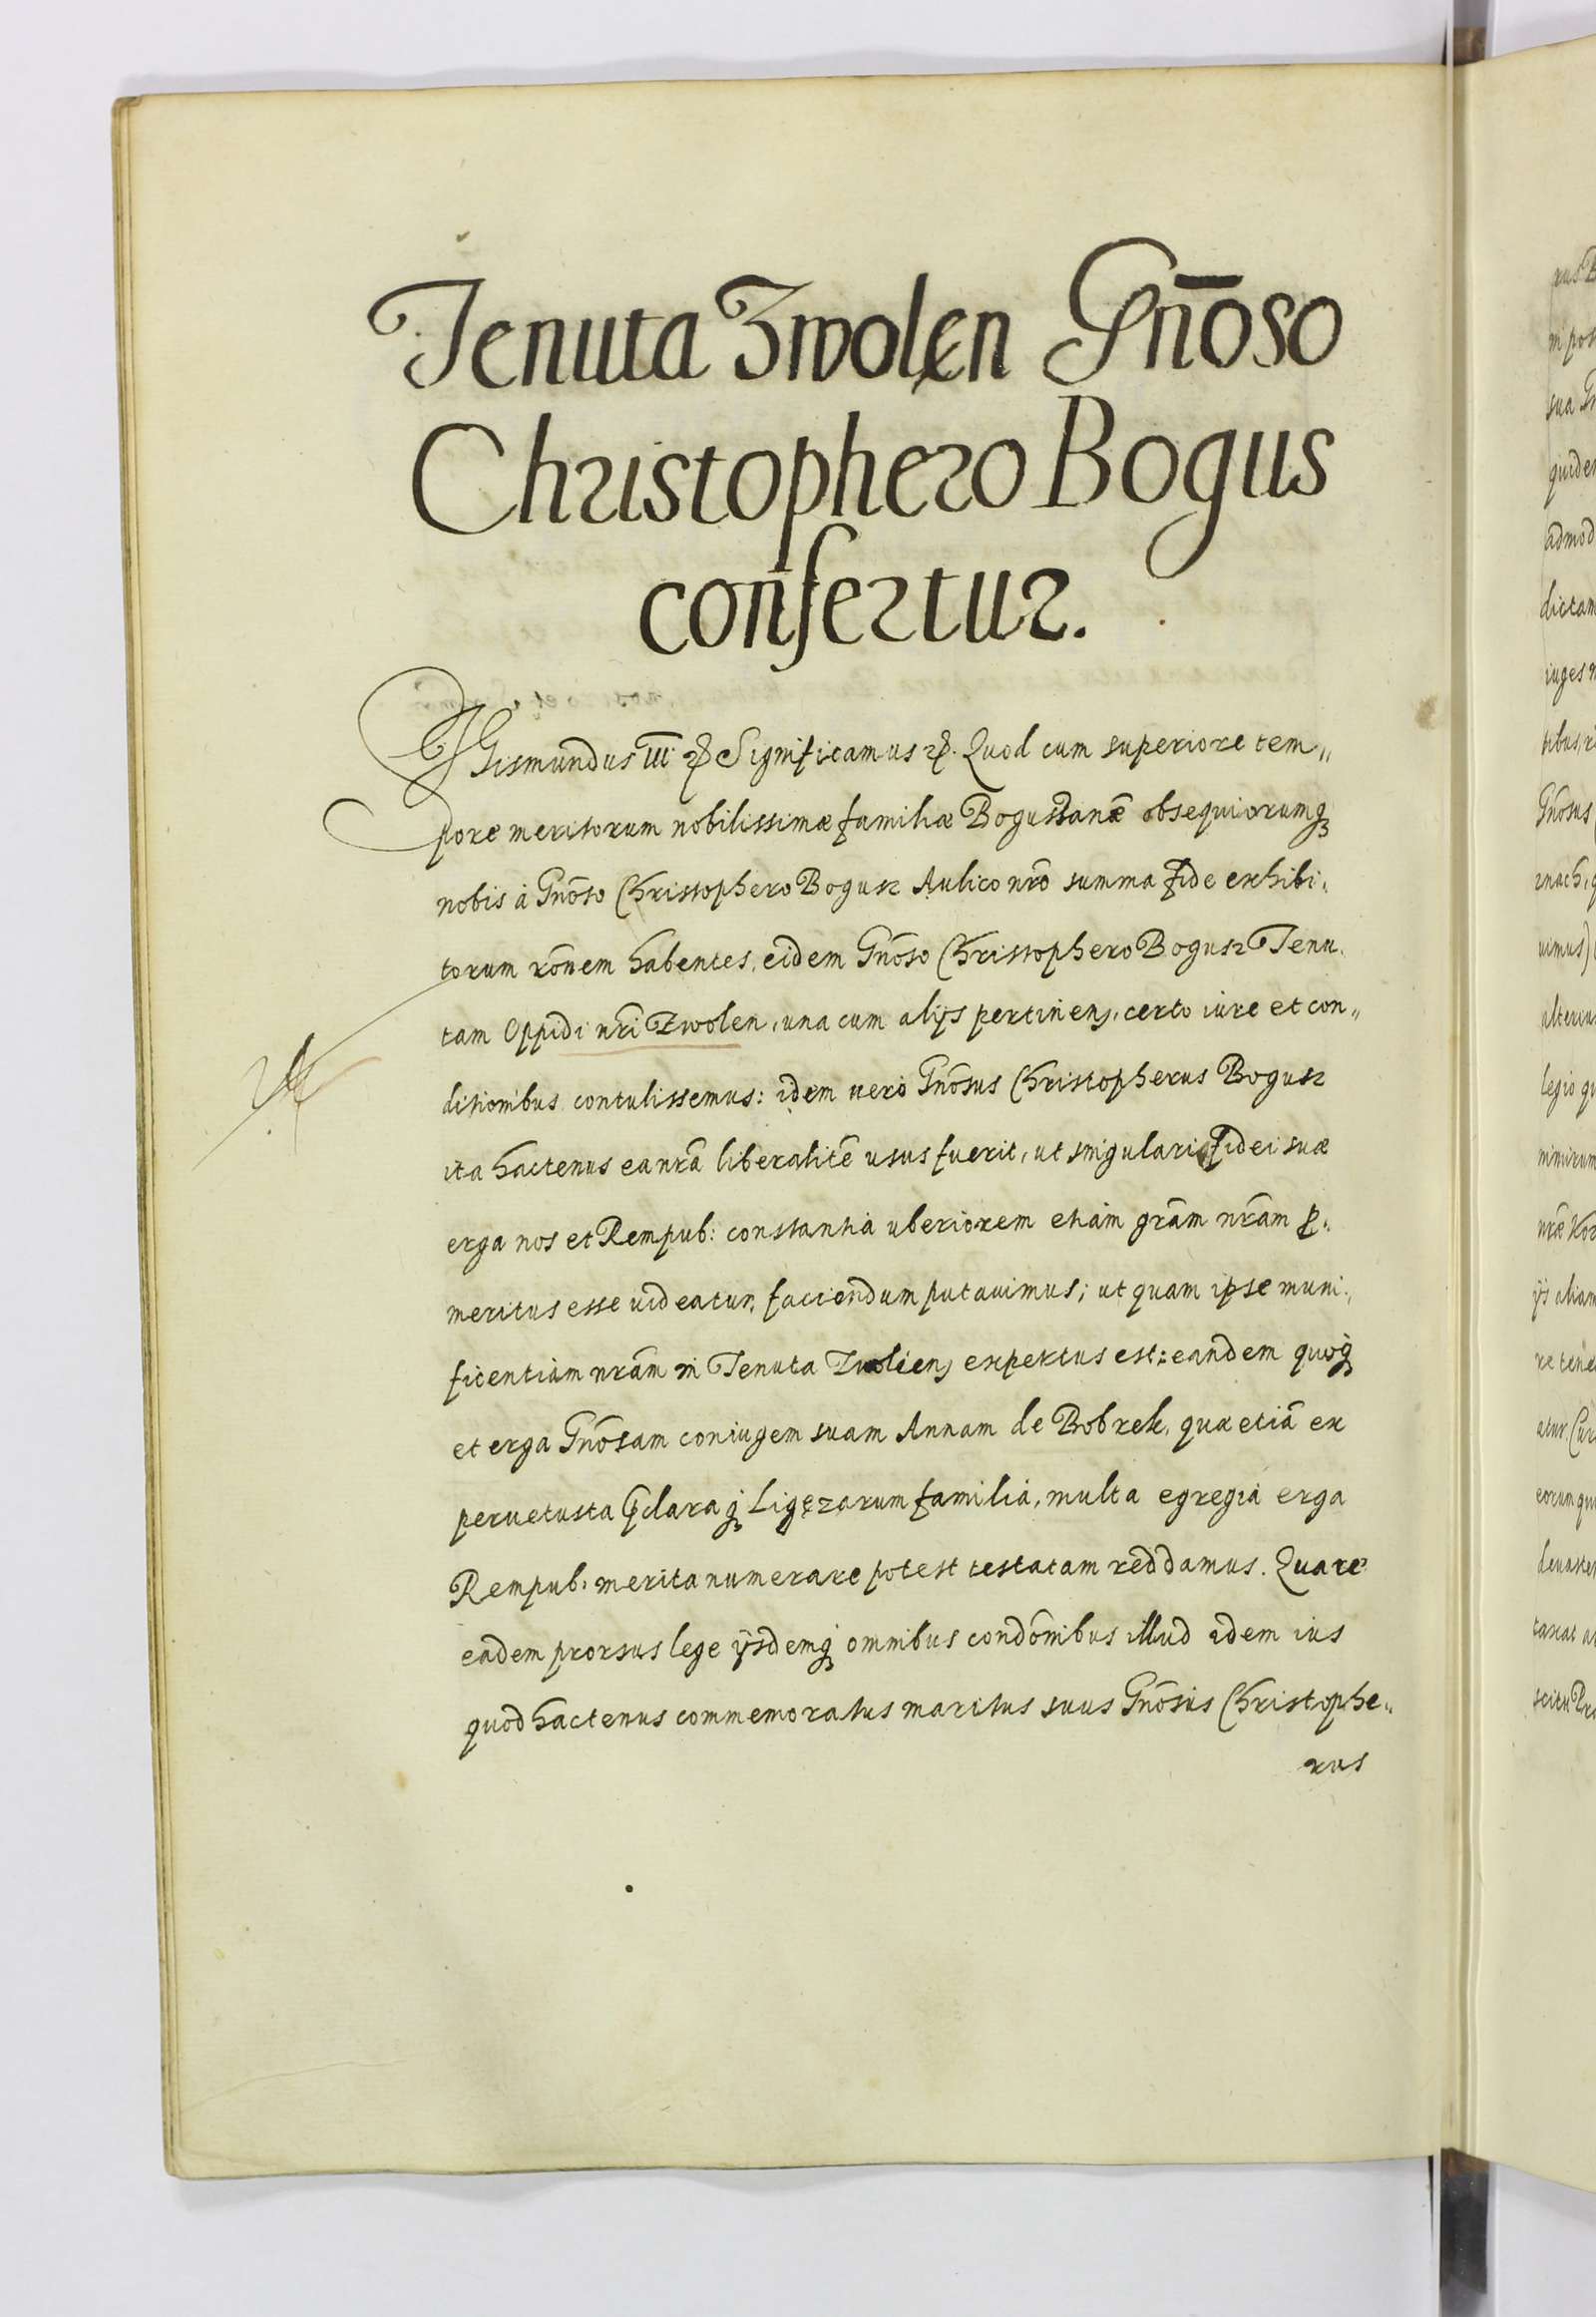 Tenuta Zwolen Gn̄oso
Christophero Bogus
confertur.
Sigismundus III etc. Significamus etc. Quod cum superiore tem„
pore meritorum nobilissimæ familiæ Bogussianæ obsequiorumq́ꝫ
nobis à Gnōso Christophero Bogusz Aulico nr̄o summa fide exhibi„
torum rōnem habentes, eidem Gnōso Christophero Bogusz Tenu„
tam Oppidi nr̄i Zwolen, una cum alijs pertinenꝫ, certo iure et con„
ditionibus contulissemus: idem uero Gnōsus Christopherus Bogusz
ita hactenus ea nrā liberalitē usus fuerit, ut singulari fidei suæ
erga nos et Rempub: constantia uberiorem etiam grām nrām ꝓ„
meritus esse uideatur, faciendum putauimus; ut quam ipse muni„
ficentiam nrām in Tenuta Zwolienꝫ expertus est: eandem quoq́ꝫ
et erga Gnōsam coniugem suam Annam de Bobrek, quæ etiā ex
peruetusta p̄claraq́ꝫ Ligęzarum familia, multa egregia erga
Rempub: merita numerare potest testatam reddamus. Quare
eadem prorsus lege ijsdemq́ꝫ omnibus condōnibus illud idem ius
quod hactenus commemoratus maritus suus Gnōsus Christophe„
rus